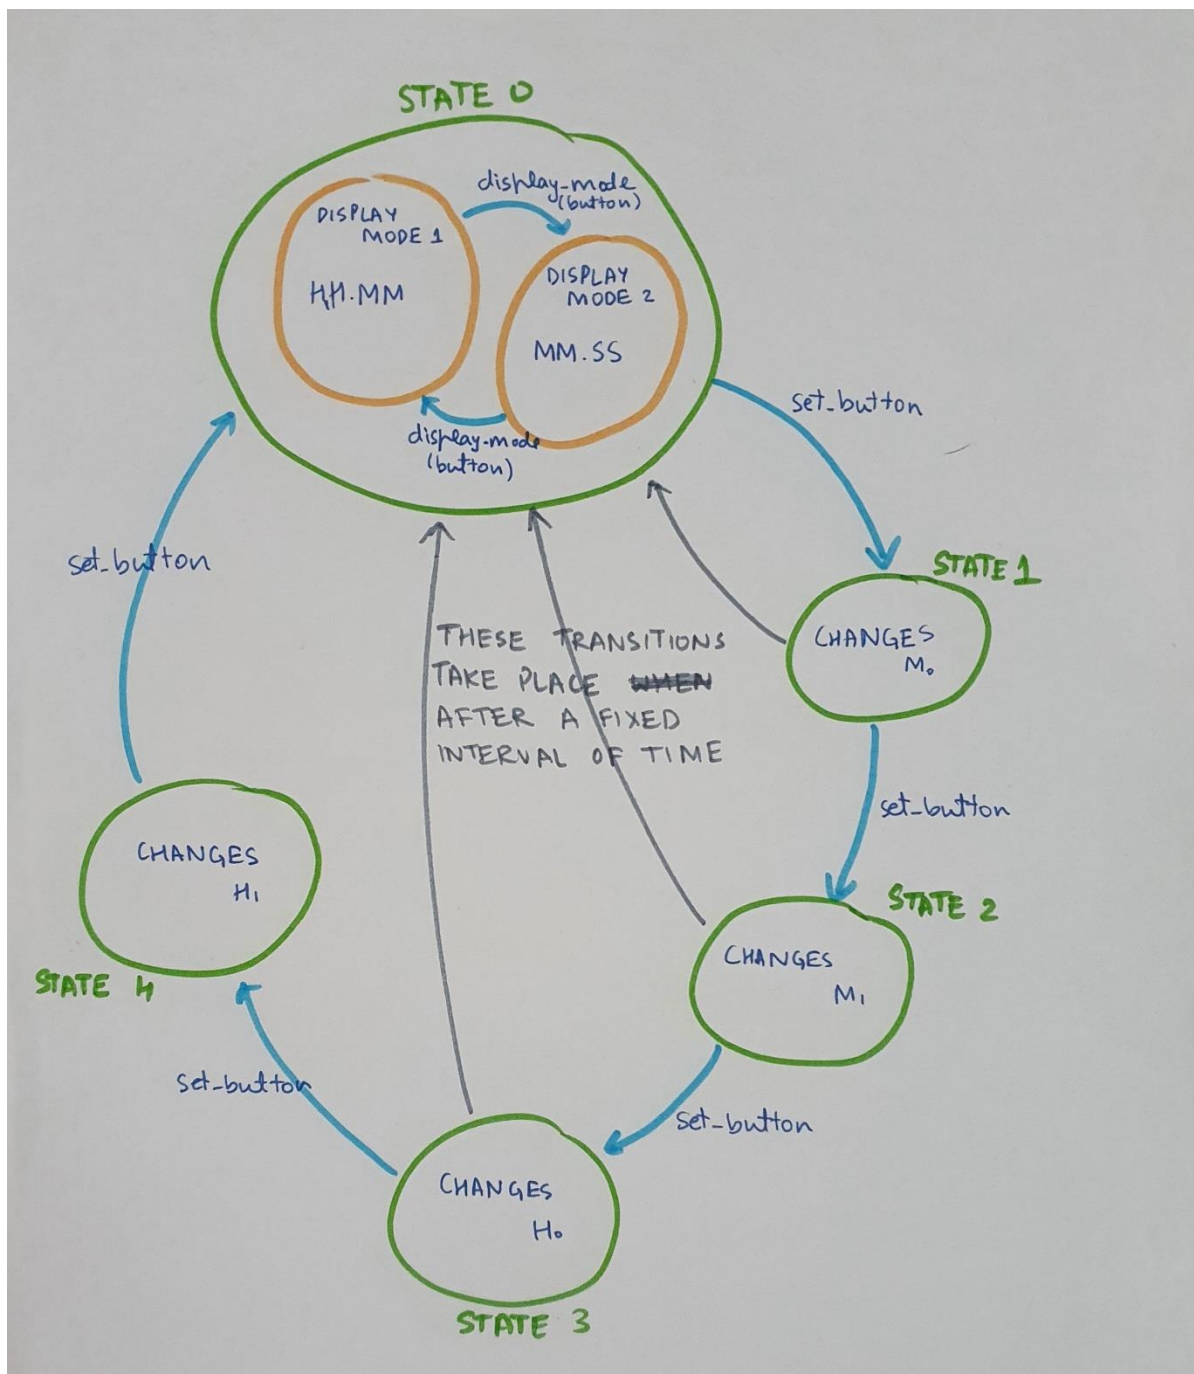 STATE 0
display-mode
(button)
DISPLAY
MODE 1
HH.MM
DISPLAY
MODE 2
MM.SS
display-mode
(button)
set_button
STATE 1
CHANGES
M₀
set_button
STATE 2
CHANGES
M₁
set_button
STATE 3
CHANGES
H₀
set_button
STATE 4
CHANGES
H₁
set_button
THESE TRANSITIONS
TAKE PLACE
AFTER A FIXED
INTERVAL OF TIME